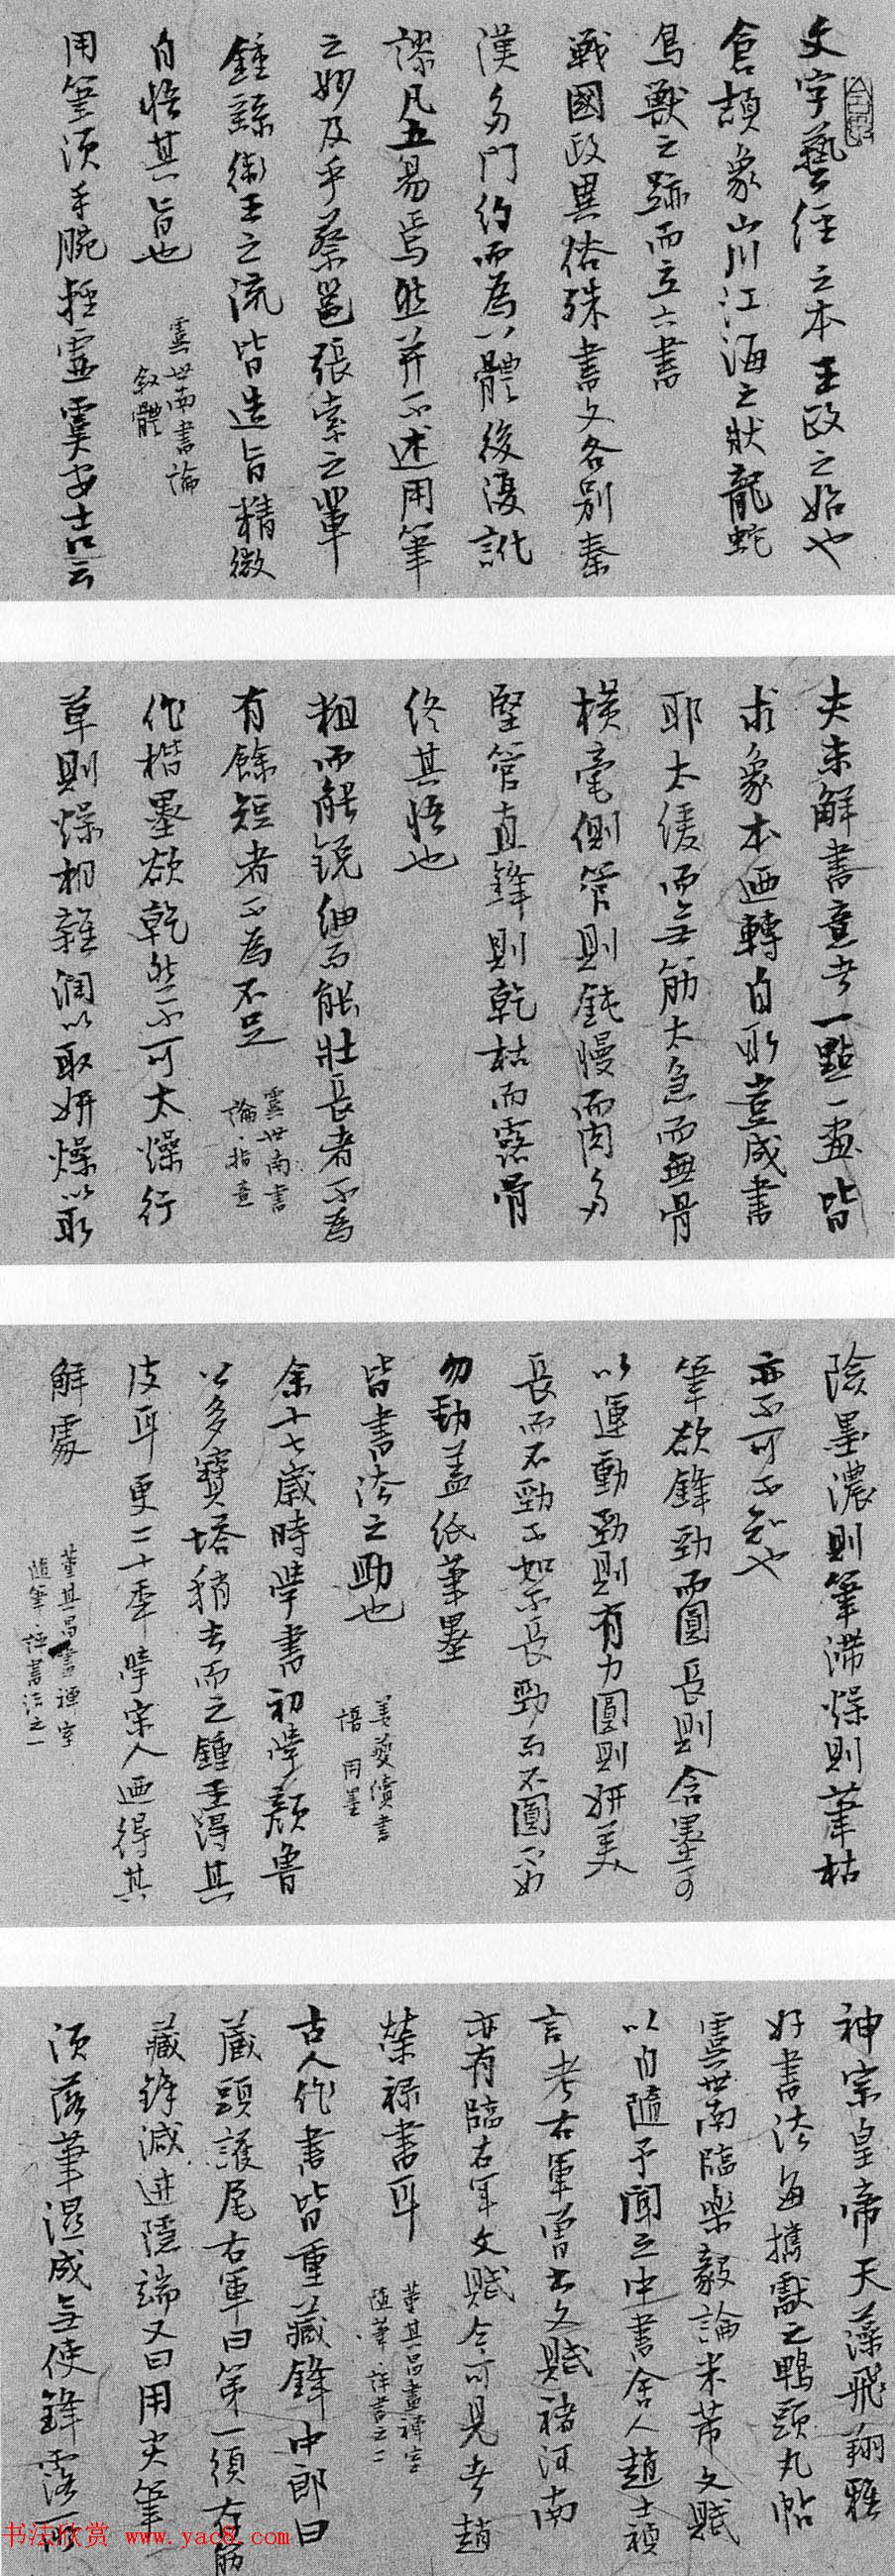 文字藝經之本王政之始也
倉頡象山川江海之狀龍蛇
鳥獸之跡而立六書
戰國政異俗殊書文各別秦
漢多門約而為八體後復訛
謬凡五易焉然并不述用筆
之妙及乎蔡邕張索之輩
鍾繇衛王之流皆造旨精微
自悟其旨也
虞世南書論
敘體
用筆須手腕輕虛虞安吉云
夫未解書意者一點一畫皆
求象本迺轉自取豈成書
耶太緩而無筋太急而無骨
橫毫側管則鈍慢而肉多
堅管直鋒則乾枯而露骨
終其悟也
粗而能銳細而能壯長者不為
有餘短者不為不足
虞世南書
論·指意
作楷墨欲乾然不可太燥行
草則燥相雜潤以取妍燥以取
險墨濃則筆滯燥則筆枯
亦不可不知也
筆欲鋒勁而圓長則含墨可
以運動勁則有力圓則妍美
長而不勁不如不長勁而不圓不如
勿勁蓋紙筆墨
皆書法之助也
姜夔續書
語 用墨
余十七歲時學書初學顏魯
公多寶塔稍去而之鍾王得其
皮耳更二十年學宋人迺得其
解處
董其昌畫禪室
隨筆·評書法之一
神宗皇帝天藻飛翔雅
好書法每攜獻之鴨頭丸帖
虞世南臨樂毅論米芾文賦
以自隨予聞之中書舍人趙士禎
言考右軍曾書文賦褚河南
亦有臨右軍文賦今可見者趙
榮祿書耳
董其昌畫禪室
隨筆·評書之二
古人作書皆重藏鋒中郎曰
藏頭護尾右軍曰第一須存筋
藏鋒滅迹隱端又曰用尖筆
須落筆混成無使鋒露所
书法欣赏 www.yac8.com